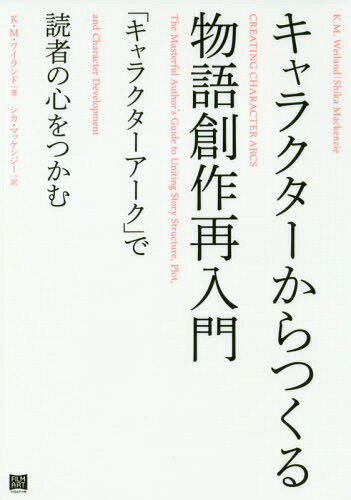 K.M. Weiland/Shika Mackenzie
キャラクターからつくる
CREATING CHARACTER ARCS
物語創作再入門
The Masterful Author's Guide to Uniting Story Structure, Plot,
「キャラクターアーク」で
and Character Development
読者の心をつかむ
K・M・ワイランド｜著　シカ・マッケンジー｜訳
FILM
ART